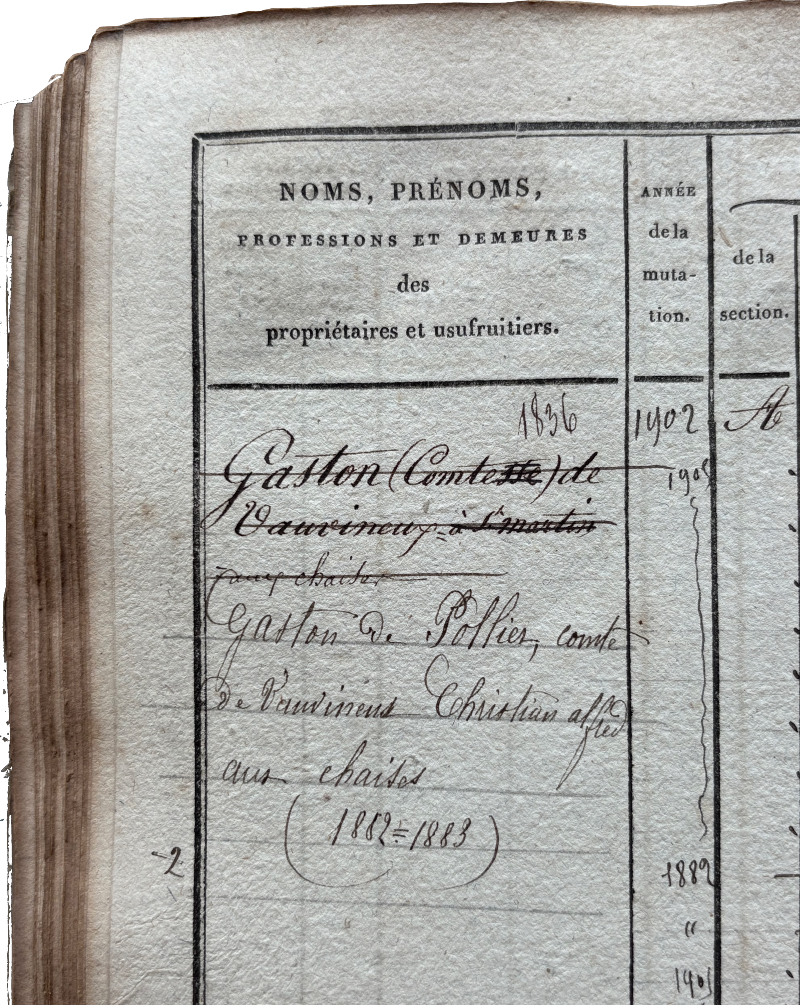 NOMS, PRÉNOMS,
PROFESSIONS ET DEMEURES
des
propriétaires et usufruitiers.
ANNÉE
de la
muta-
tion.
de la
section.
1836
1902
A
Gaston (Comtesse) de
1905
Vauvineux = à St martin
aux chaises
Gaston de Pollier, comte
de Vauvineux Christian alfred
aux chaises
(1882=1883)
2
1882
"